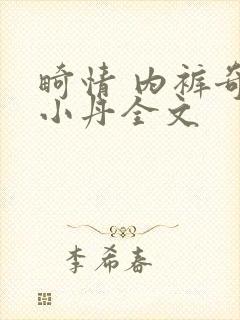 畸情 内裤奇
小丹全文
李希春